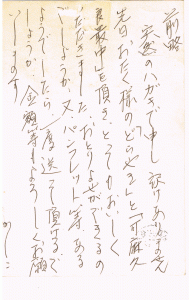 前略
突然のハガキで申し訳ありません
先日おたく様のどらやきと「可麻久
良最中」を頂き、とてもおいしく
いただきました。おとりよせができるの
でしょうか。又パンフレット等ある
ようでしたら一度送って頂けるで
しょうか 金額等もよろしくお願
いします
かしこ